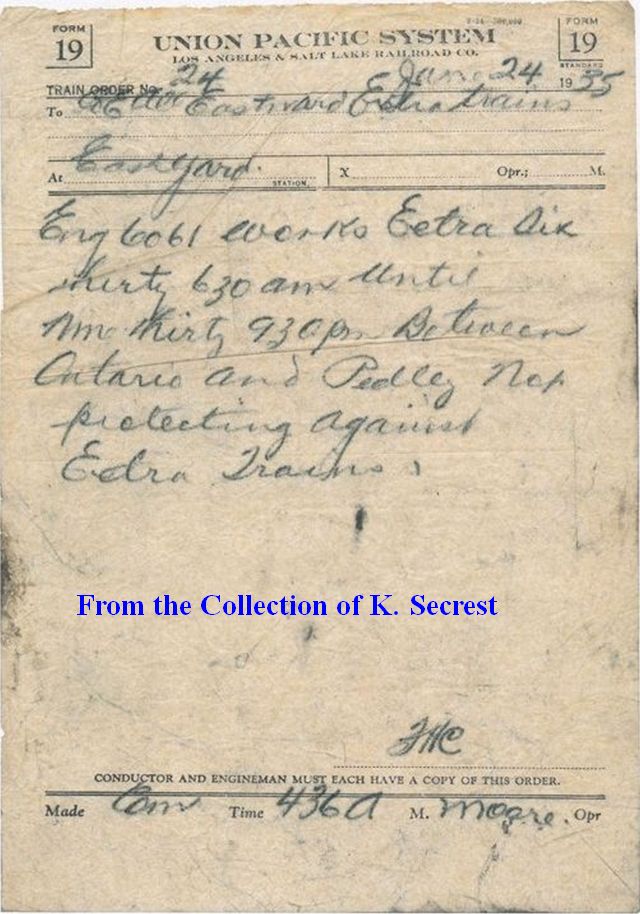 FORM 19
2-34-500,000
FORM 19
STANDARD
UNION PACIFIC SYSTEM
LOS ANGELES & SALT LAKE RAILROAD CO.
TRAIN ORDER No. 24 June 24 1935
To All Eastward Extra trains
At East yard. STATION, X Opr.; M.
Eng 6061 works Extra Six
thirty 630 am Until
Nine thirty 930 pm Between
Ontario and Pedley Not
protecting against
Extra Trains.
From the Collection of K. Secrest
CONDUCTOR AND ENGINEMAN MUST EACH HAVE A COPY OF THIS ORDER.
Made Com Time 436 A M. Moore. Opr